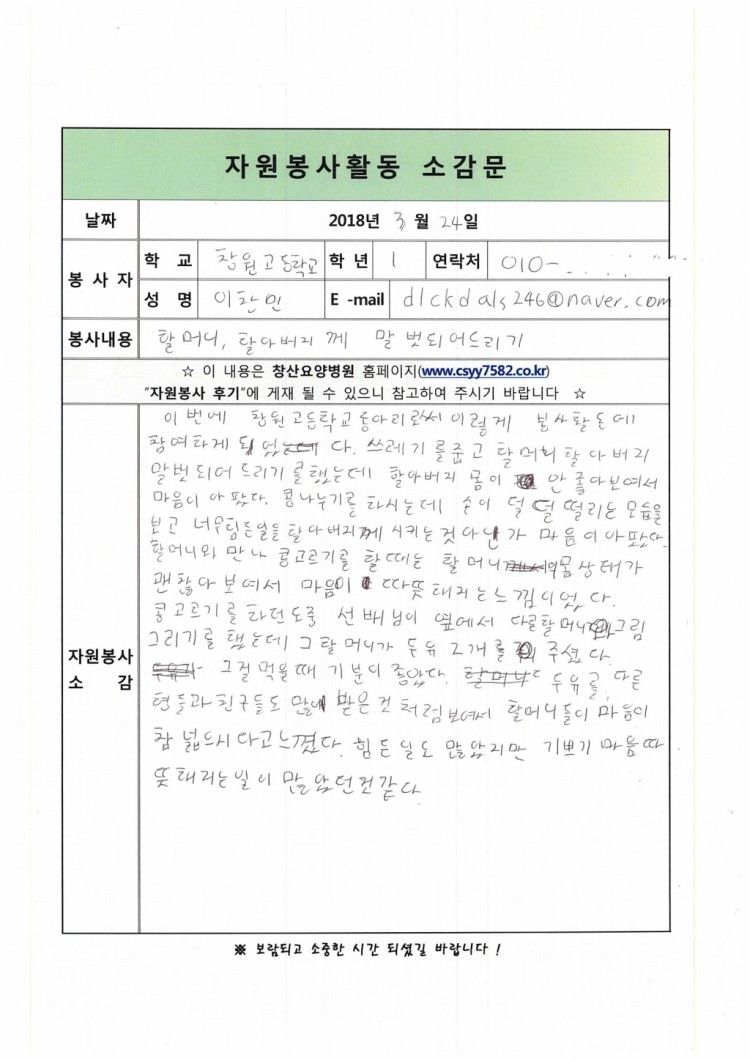 자원봉사활동 소감문
날짜 2018년 3월 24일
봉사자 학교 창원고등학교 학년 1 연락처 010-
성명 이창민 E-mail dlckdals246@naver.com
봉사내용 할머니, 할아버지께 말벗되어드리기
☆ 이 내용은 창산요양병원 홈페이지(www.csyy7582.co.kr)
"자원봉사 후기"에 게재 될 수 있으니 참고하여 주시기 바랍니다 ☆
자원봉사 소감
이번에 창원고등학교동아리로써 이렇게 봉사활동에
참여하게 되었다. 쓰레기를줍고 할머니할아버지
말벗되어드리기를했는데 할아버지 몸이 안좋아보여서
마음이 아팠다. 콩나누기를 하시는데 손이 덜덜떨리는 모습을
보고 너무힘든일을할아버지께 시키는것아닌가 마음이아팠다.
할머니와 만나 콩고르기를 할때는 할머니의몸상태가
괜찮아보여서 마음이 따뜻해지는느낌이었다.
콩고르기를하던도중 선배님이 옆에서 다른할머니와그림
그리기를 했는데 그할머니가 두유 2개를 주셨다.
그걸먹을때 기분이 좋았다. 두유를 다른
형들과친구들도 많이 받은것처럼보여서 할머니들이 마음이
참 넓으시다고느꼈다. 힘든일도 많았지만 기쁘기마음따
뜻해지는일이 많았던것같다
※ 보람되고 소중한 시간 되셨길 바랍니다 !